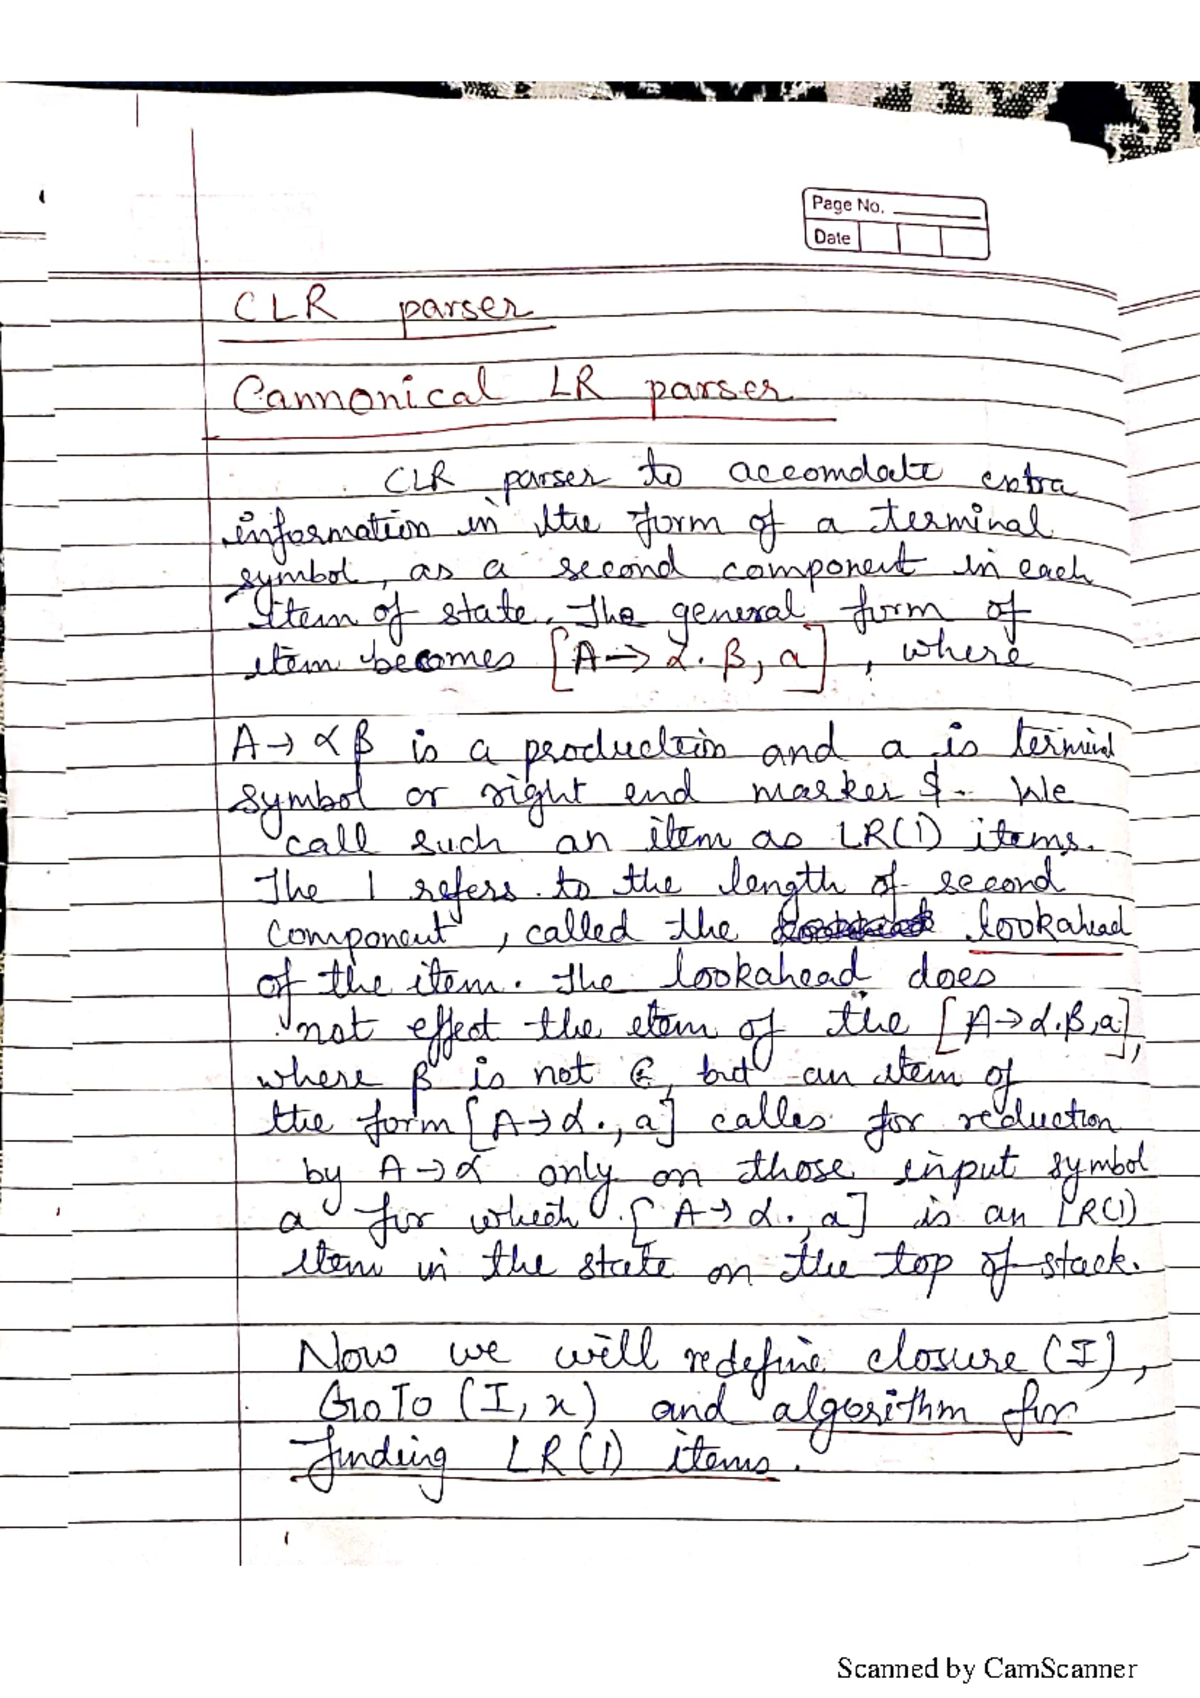 Page No.
Date
CLR parser
Cannonical LR parser
CLR parser to accomdate extra
information in the form of a terminal
symbol, as a second component in each
item of state. The general form of
item becomes [A → α . β, a] , where
A → α β is a production and a is terminal
symbol or right end marker $. We
call such an item as LR(1) items.
The 1 refers to the length of second
component , called the lookahead
of the item. The lookahead does
not effect the etem of the [A → α.β,a],
where β is not ε, but an item of
the form [A → α., a] calles for reduction
by A → α only on those input symbol
a for which [A → α., a] is an LR(1)
item in the state on the top of stack.
Now we will redefine closure (I),
GoTo (I, x) and algorithm for
finding LR(1) items.
Scanned by CamScanner